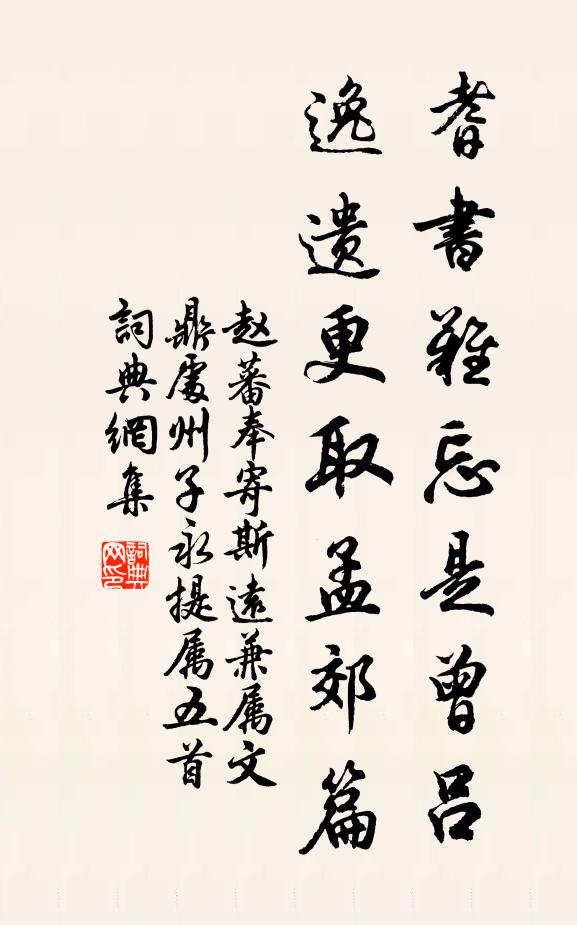 耆書難忘是曾吕
逸遺更取孟郊篇
赵蕃奉寄斯遠兼属文
鼎處州子永提属五首
詞典網集
詞典网印